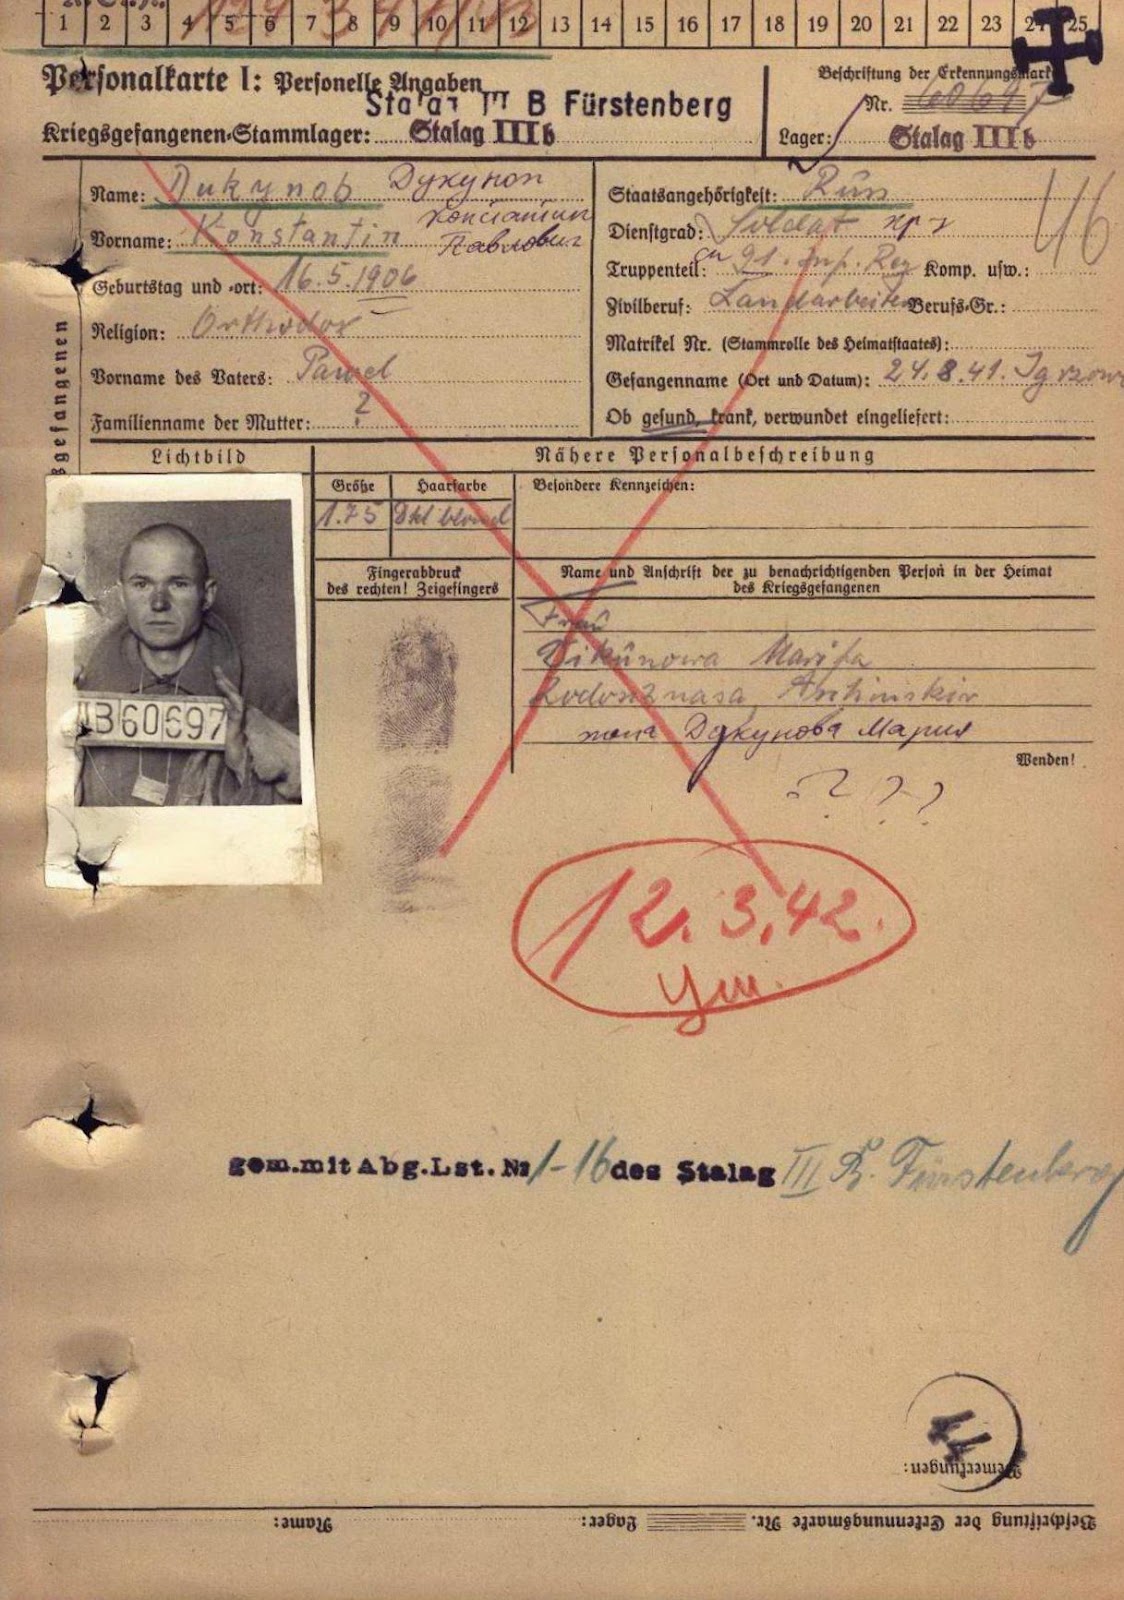 1 2 3 4 5 6 7 8 9 10 11 12 13 14 15 16 17 18 19 20 21 22 23 24 25
Personalkarte I: Personelle Angaben
Stalag III B Fürstenberg
Kriegsgefangenen-Stammlager: Stalag III b
Beschriftung der Erkennungsmarke
Nr. 60697
Lager: Stalag III b
Name: Dukynob Дукунов
Vorname: Konstantin Константин
Павлович
Geburtstag und -ort: 16.5.1906
Religion: Orthodox
Vorname des Vaters: Pawel
Familienname der Mutter: ?
Staatsangehörigkeit: Rus
46
Dienstgrad: Soldat кр-ц
Truppenteil: 91. Inf. Reg Komp. usw.:
Zivilberuf: Landarbeiter Berufs-Gr.:
Matrikel Nr. (Stammrolle des Heimatstaates):
Gefangenname (Ort und Datum): 24.8.41.
Ob gesund, krank, verwundet eingeliefert:
gefangenen
Lichtbild
Nähere Personalbeschreibung
Größe Haarfarbe Besondere Kennzeichen:
1.75 Dkl blond
Fingerabdruck
des rechten! Zeigefingers
Name und Anschrift der zu benachrichtigenden Person in der Heimat
des Kriegsgefangenen
Frau
Dikunowa Marija
жена Дукунова Мария
Wenden!
? ? ?
IIIB60697
12.3.42.
Ум.
gem.mit Abg.Lst.№ 1-16 des Stalag III B. Fürstenberg
Bemerkungen:
Beschriftung der Erkennungsmarke Nr. Lager: Name: